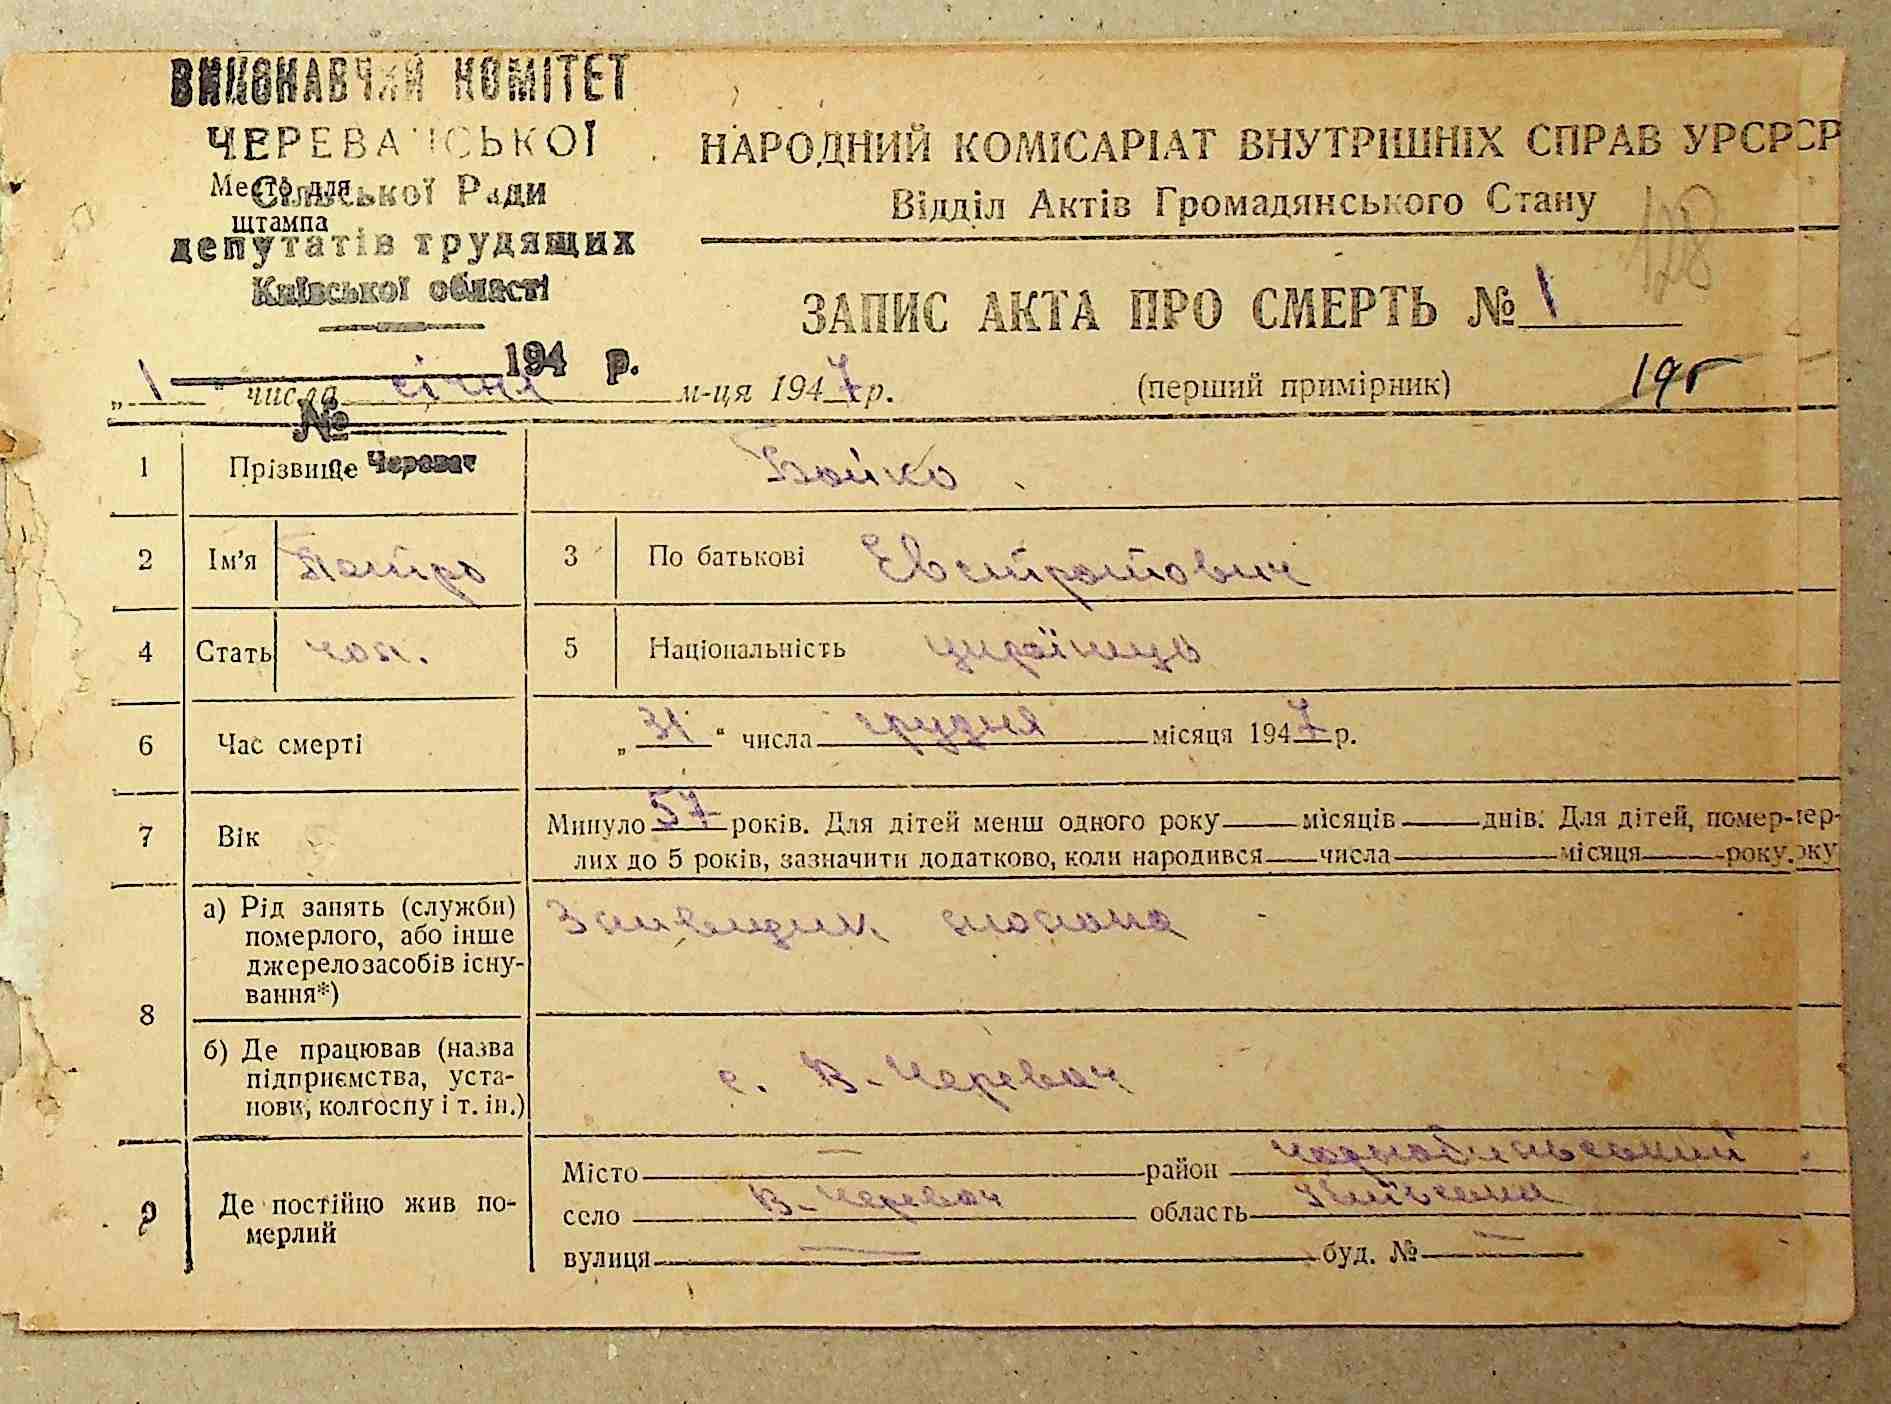 ВИКОНАВЧИЙ КОМІТЕТ
ЧЕРЕВАЧСЬКОЇ
Сільської Ради
депутатів трудящих
Київської області
194 р.
№
Черевач
Место для
штампа
НАРОДНИЙ КОМІСАРІАТ ВНУТРІШНІХ СПРАВ УРСР
Відділ Актів Громадянського Стану
128
ЗАПИС АКТА ПРО СМЕРТЬ № 1
„ 1 “ числа січня м-ця 1947 р.
(перший примірник)
195
1 Прізвище Бойко
2 Ім'я Петро 3 По батькові Евстратович
4 Стать чол. 5 Національність українець
6 Час смерті „ 31 “ числа грудня місяця 1947 р.
7 Вік Минуло 57 років. Для дітей менш одного року місяців днів. Для дітей, помер-
лих до 5 років, зазначити додатково, коли народився числа місяця року.
8 а) Рід занять (служби)
померлого, або інше
джерело засобів існу-
вання*)
б) Де працював (назва
підприємства, уста-
нови, колгоспу і т. ін.)
с. В-Черевач
9 Де постійно жив по-
мерлий
Місто — район Чорнобильський
село В-Черевач область Київська
вулиця — буд. № —